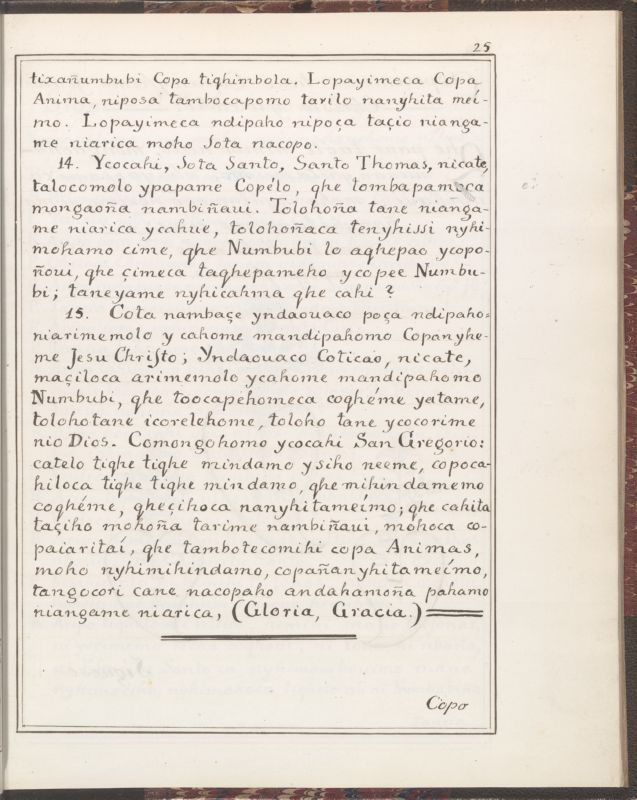 25
tixañumbubi Copa tiqhimbola. Lopayimeca Copa
Anima, niposa tambocapomo tarilo nanyhita meí-
mo. Lopayimeca ndipaho nipoça taçio nianga-
me niarica moho Sota nacopo.
14. Ycocahi, Sota Santo, Santo Thomas, nicate,
talocomolo ypapame Copélo, qhe tombapamoca
mongaoña nambiñaui. Tolohoña tane nianga-
me niarica ycahue, tolohoñaca tenyhissi nyhi-
mohamo cime, qhe Numbubi lo aqhepao ycopo-
ñoui, qhe çimeca taqhepameho ycopee Numbu-
bi; taneyame nyhicahma qhe cahi ?
15. Cota nambaçe yndaouaco poça ndipaho=
niarimemolo y cahome mandipahomo Copanyhe-
me Jesu Chriſto; Yndaouaco Coticao, nicate,
maçiloca arimemolo ycahome mandipahomo
Numbubi, qhe toocapéhomeca coqhéme yatame,
tolohotane icorelehome, toloho tane ycocorime
nio Dios. Comongohomo ycocahi San Gregorio:
catelo tiqhe tiqhe mindamo ysiho neeme, copoca-
hiloca tiqhe tiqhe mindamo, qhe mihindamemo
coqhéme, qheçihoca nanyhitameímo; qhe cahita
taçiho mohoña tarime nambiñaui, mohoca co-
paiaritaí, qhe tambotecomihi copa Animas,
moho nyhimihindamo, copañanyhitameímo,
tangocori cane nacopaho andahamoña pahamo
niangame niarica, (Gloria, Gracia.)
Copo